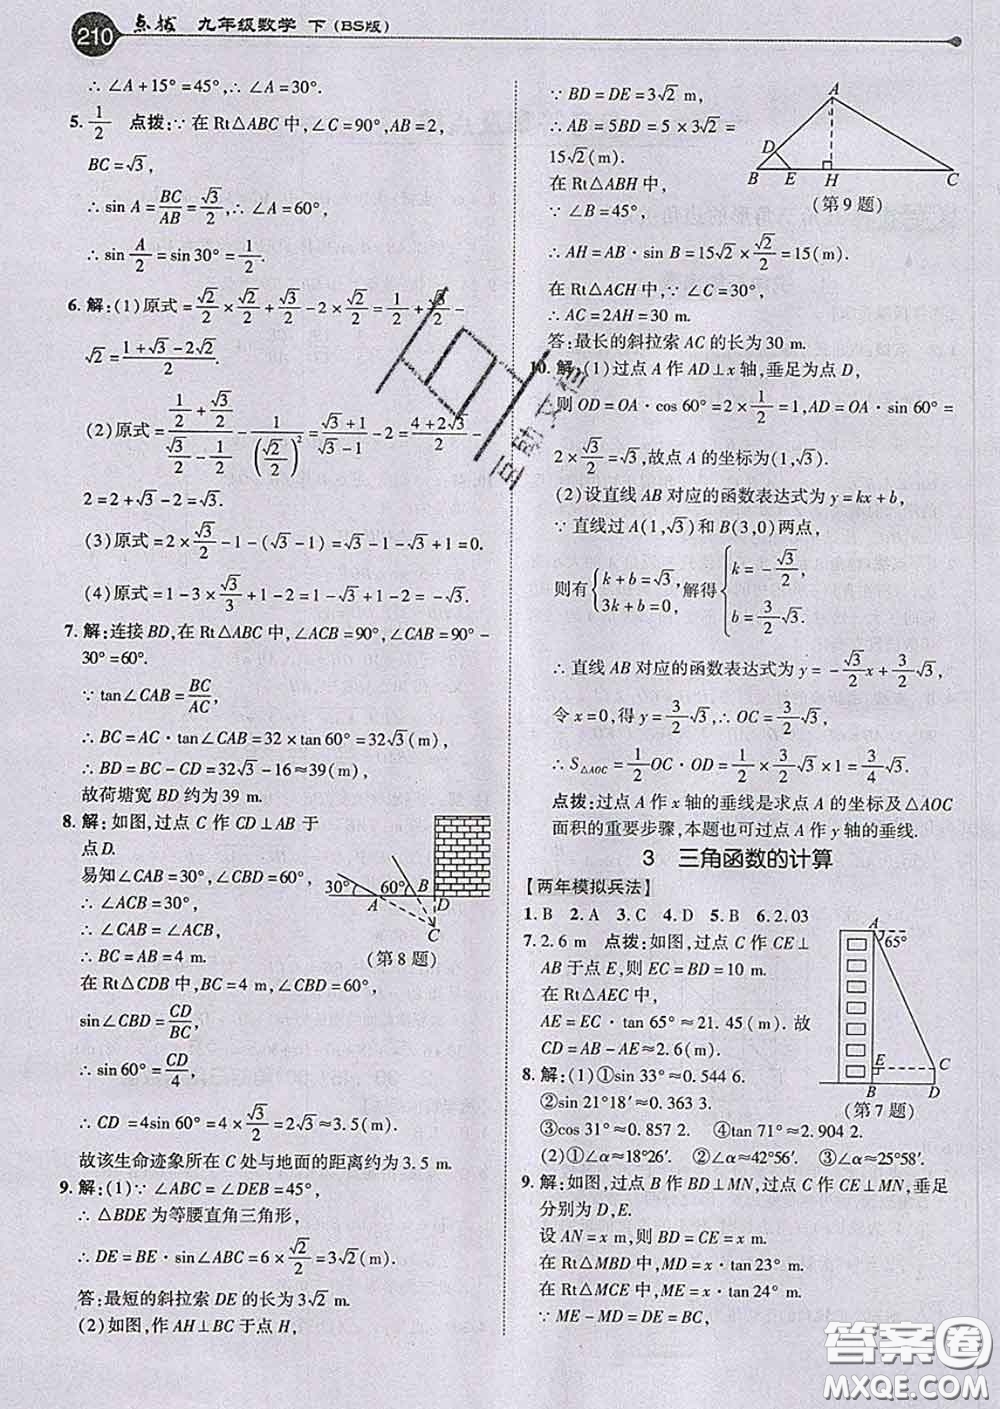 210 点拨 九年级数学 下(BS版)
∴ ∠A+15°=45°,∴ ∠A=30°.
5. 1/2 点拨:∵ 在 Rt△ABC 中,∠C=90°,AB=2,
BC=√3,
∴ sin A=BC/AB=√3/2,∴ ∠A=60°,
∴ sin A/2=sin 30°=1/2.
6. 解:(1)原式=√2/2×√2/2+√3/2-2×√2/2=1/2+√3/2-
√2=(1+√3-2√2)/2.
(2)原式=(1/2+√3/2)/(√3/2-1/2)-1/(√2/2)²=(√3+1)/(√3-1)-2=(4+2√3)/2-
2=2+√3-2=√3.
(3)原式=2×√3/2-1-(√3-1)=√3-1-√3+1=0.
(4)原式=1-3×√3/3+1-2=1-√3+1-2=-√3.
7. 解:连接 BD,在 Rt△ABC 中,∠ACB=90°,∠CAB=90°-
30°=60°.
∵ tan∠CAB=BC/AC,
∴ BC=AC·tan∠CAB=32×tan 60°=32√3(m),
∴ BD=BC-CD=32√3-16≈39(m),
故荷塘宽 BD 约为 39 m.
8. 解:如图,过点 C 作 CD⊥AB 于
点 D.
易知∠CAB=30°,∠CBD=60°,
∴ ∠ACB=30°,
∴ ∠CAB=∠ACB,
∴ BC=AB=4 m.
在 Rt△CDB 中,BC=4 m,∠CBD=60°,
sin∠CBD=CD/BC,
∴ sin 60°=CD/4,
∴ CD=4sin 60°=4×√3/2=2√3≈3.5(m).
故该生命迹象所在 C 处与地面的距离约为 3.5 m.
30° 60° B
A D
C
(第 8 题)
9. 解:(1)∵ ∠ABC=∠DEB=45°,
∴ △BDE 为等腰直角三角形,
∴ DE=BE·sin∠ABC=6×√2/2=3√2(m).
答:最短的斜拉索 DE 的长为 3√2 m.
(2)如图,作 AH⊥BC 于点 H,
∵ BD=DE=3√2 m,
∴ AB=5BD=5×3√2=
15√2(m).
在 Rt△ABH 中,
∵ ∠B=45°,
∴ AH=AB·sin B=15√2×√2/2=15(m).
在 Rt△ACH 中,∵ ∠C=30°,
∴ AC=2AH=30 m.
答:最长的斜拉索 AC 的长为 30 m.
A
D
B E H C
(第 9 题)
10. 解:(1)过点 A 作 AD⊥x 轴,垂足为点 D,
则 OD=OA·cos 60°=2×1/2=1,AD=OA·sin 60°=
2×√3/2=√3,故点 A 的坐标为(1,√3).
(2)设直线 AB 对应的函数表达式为 y=kx+b,
∵ 直线过 A(1,√3)和 B(3,0)两点,
则有{k+b=√3, 3k+b=0. 解得{k=-√3/2, b=3/2√3.
∴ 直线 AB 对应的函数表达式为 y=-√3/2x+3/2√3,
令 x=0,得 y=3/2√3,∴ OC=3/2√3,
∴ S△AOC=1/2OC·OD=1/2×3/2√3×1=3/4√3.
点拨:过点 A 作 x 轴的垂线是求点 A 的坐标及△AOC
面积的重要步骤,本题也可过点 A 作 y 轴的垂线.
3 三角函数的计算
【两年模拟兵法】
1. B 2. A 3. C 4. D 5. B 6. 2.03
7. 2.6 m 点拨:如图,过点 C 作 CE⊥
AB 于点 E,则 EC=BD=10 m.
在 Rt△AEC 中,
AE=EC·tan 65°≈21.45(m). 故
CD=AB-AE≈2.6(m).
A 65°
E C
B D
(第 7 题)
8. 解:(1)①sin 33°≈0.544 6.
②sin 21°18′≈0.363 3.
③cos 31°≈0.857 2. ④tan 71°≈2.904 2.
(2)①∠α≈18°26′. ②∠α≈42°56′. ③∠α≈25°58′.
9. 解:如图,过点 B 作 BD⊥MN,过点 C 作 CE⊥MN,垂足
分别为 D,E.
设 AN=x m,则 BD=CE=x m.
在 Rt△MBD 中,MD=x·tan 23° m.
在 Rt△MCE 中,ME=x·tan 24° m.
∵ ME-MD=DE=BC,
答案圈
MXQE.COM